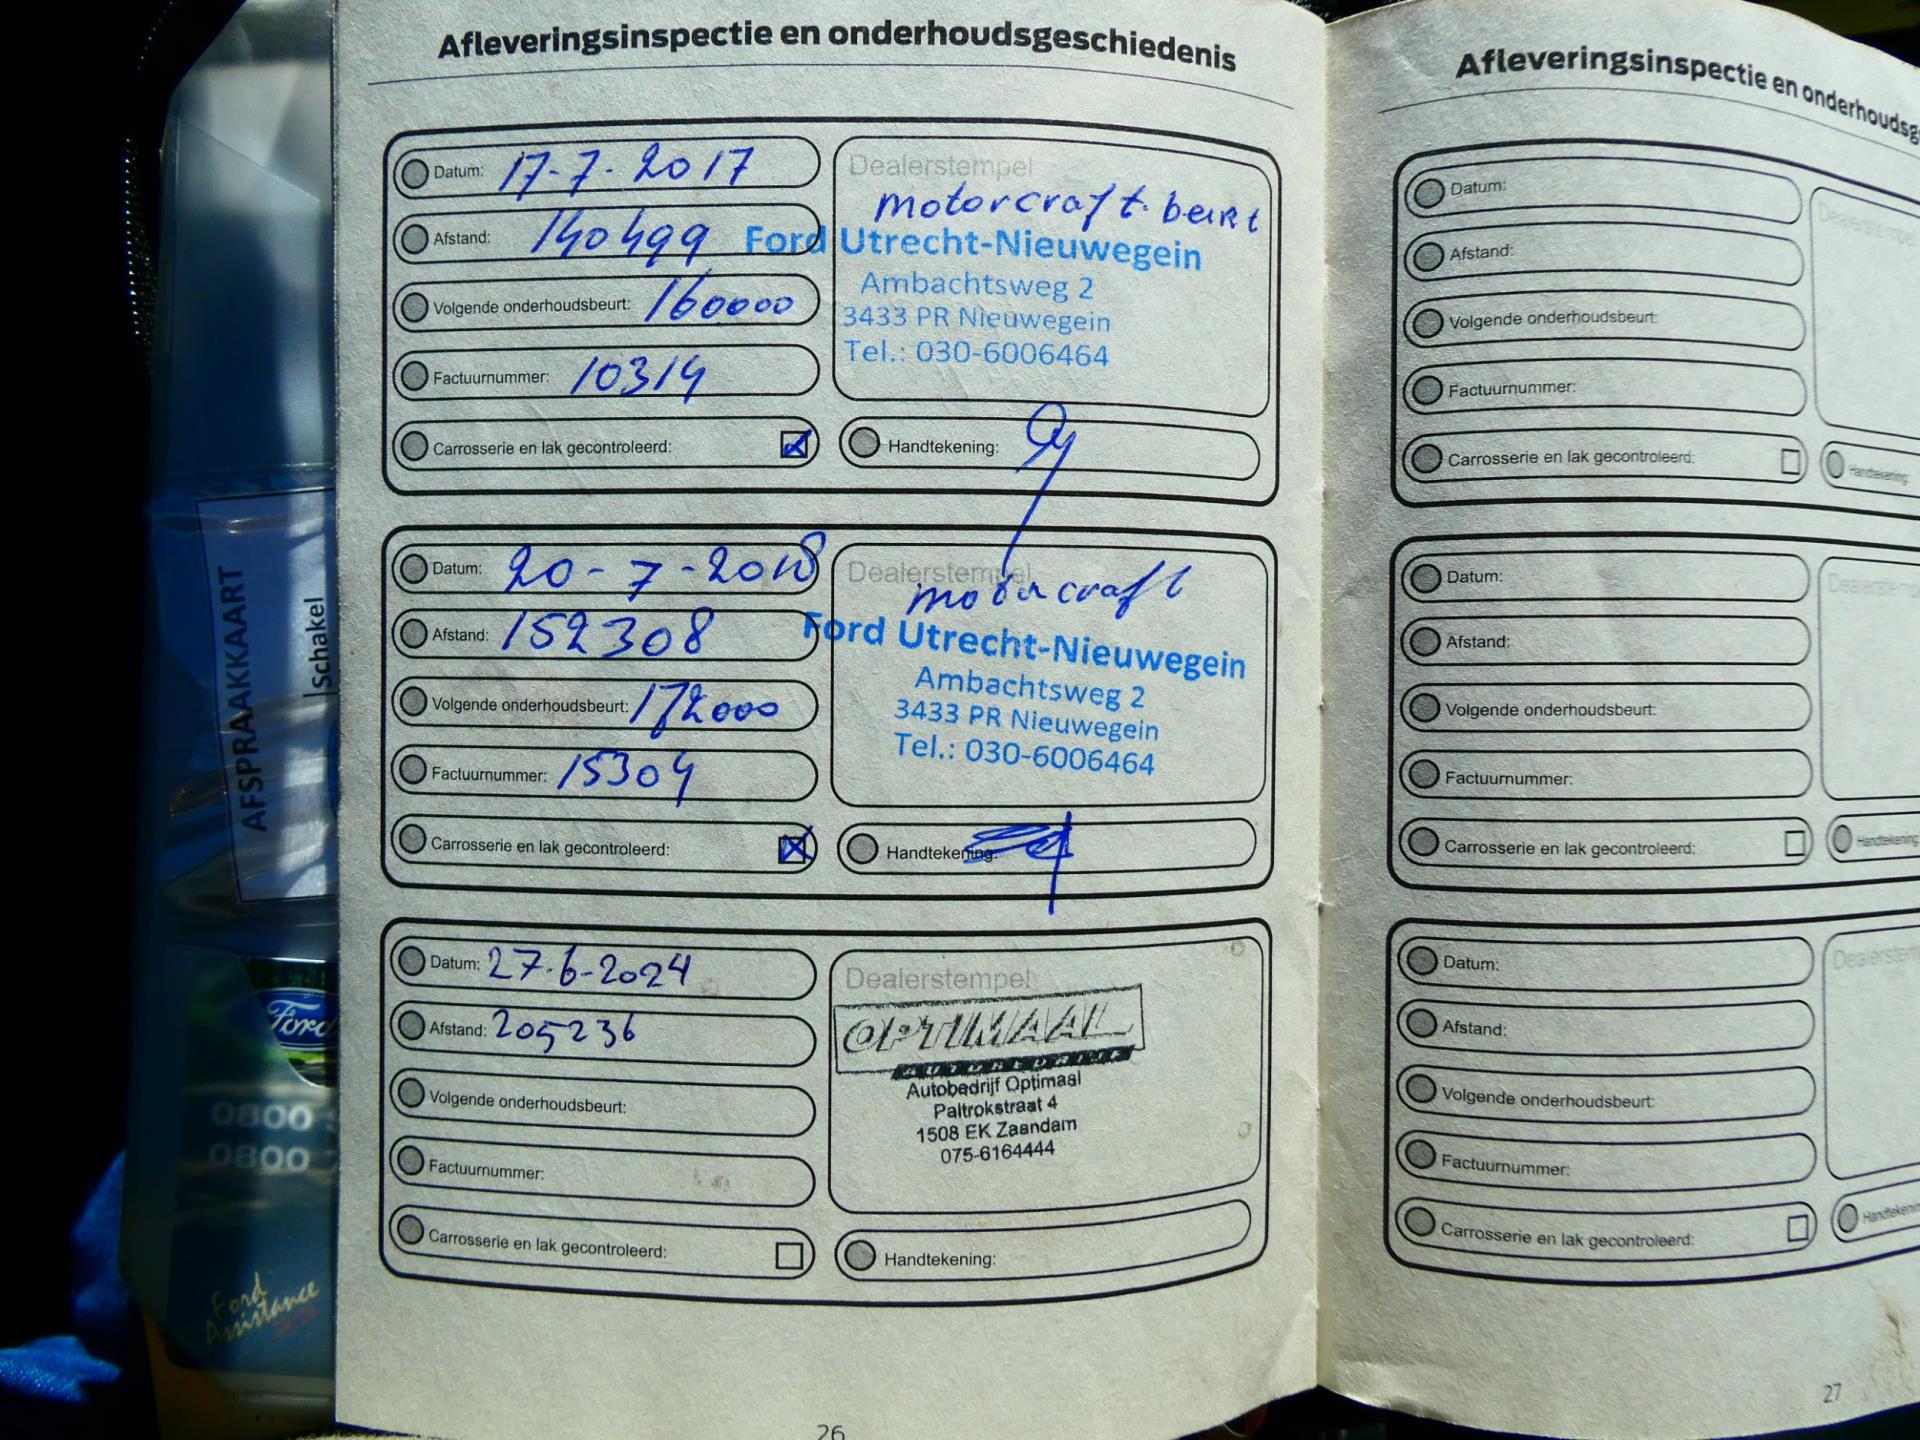 Afleveringsinspectie en onderhoudsgeschiedenis
Datum: 17-7-2017
Afstand: 140499
Volgende onderhoudsbeurt: 160000
Factuurnummer: 10314
Carrosserie en lak gecontroleerd:
Dealerstempel
motorcraft beurt
Ford Utrecht-Nieuwegein
Ambachtsweg 2
3433 PR Nieuwegein
Tel.: 030-6006464
Handtekening:
Datum: 20-7-2018
Afstand: 152308
Volgende onderhoudsbeurt: 172000
Factuurnummer: 15304
Carrosserie en lak gecontroleerd:
Dealerstempel
motorcraft
Ford Utrecht-Nieuwegein
Ambachtsweg 2
3433 PR Nieuwegein
Tel.: 030-6006464
Handtekening:
Datum: 27-6-2024
Afstand: 205236
Volgende onderhoudsbeurt:
Factuurnummer:
Carrosserie en lak gecontroleerd:
Dealerstempel
OPTIMAAL
Autobedrijf Optimaal
Paltrokstraat 4
1508 EK Zaandam
075-6164444
Handtekening:
26
Afleveringsinspectie en onderhoudsg
Datum:
Afstand:
Volgende onderhoudsbeurt:
Factuurnummer:
Carrosserie en lak gecontroleerd:
Dealerstempel
Handtekening:
Datum:
Afstand:
Volgende onderhoudsbeurt:
Factuurnummer:
Carrosserie en lak gecontroleerd:
Dealerstemp
Handtekening:
Datum:
Afstand:
Volgende onderhoudsbeurt:
Factuurnummer:
Carrosserie en lak gecontroleerd:
Dealerstem
Handtekenin
27
AFSPRAAKKAART
Schakel
Ford
0800
0800
Ford
Assistance